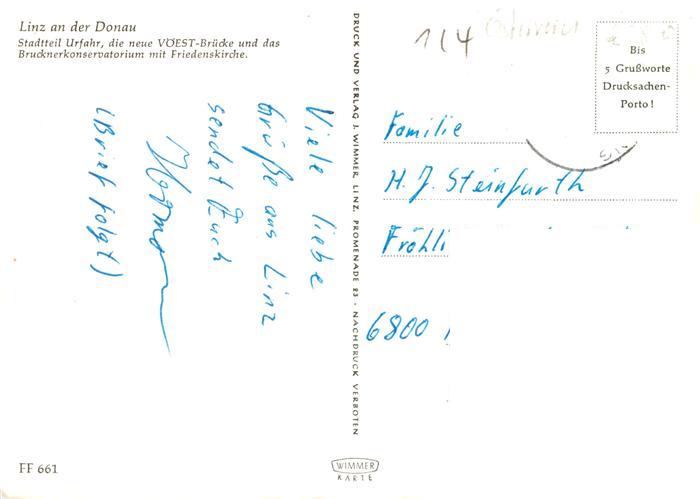 Linz an der Donau
Stadtteil Urfahr, die neue VÖEST-Brücke und das
Brucknerkonservatorium mit Friedenskirche.
Viele liebe
Grüße aus Linz
sendet Euch
(Brief folgt)
FF 661
DRUCK UND VERLAG J. WIMMER, LINZ, PROMENADE 23 · NACHDRUCK VERBOTEN
WIMMER
KARTE
114
Österreich
Bis
5 Grußworte
Drucksachen-
Porto!
Familie
H. J. Steinfurth
Fröhli
6800